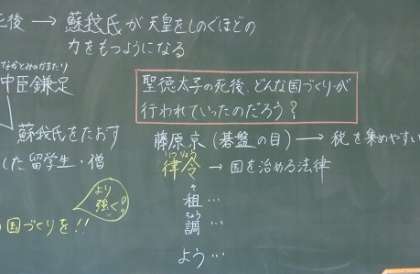 後 → 蘇我氏が天皇をしのぐほどの
力をもつようになる
なかとみのかまたり
中臣鎌足
聖徳太子の死後、どんな国づくりが
行われていったのだろう？
蘇我氏をたおす
した留学生・僧
藤原京（碁盤の目）→ 税を集めやすい
りつりょう
律令 → 国を治める法律
より
強く!!
国づくりを!!
そ
租…
ちょう
調…
よう…